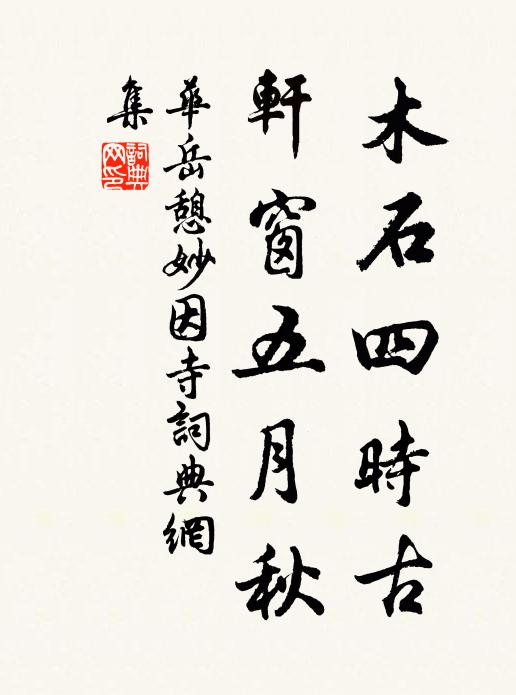 木石四時古
軒窗五月秋
華岳憩妙因寺詞典網
集
詞典网印